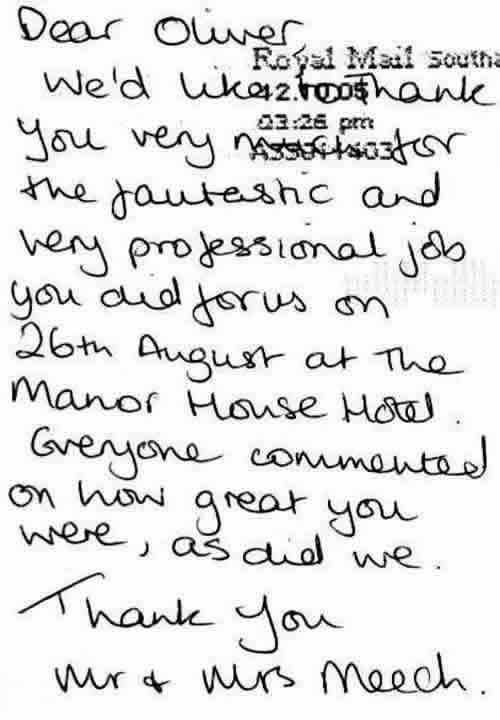 Dear Oliver
Royal Mail South
We'd like to Thank
03:26 pm
you very much for
the fantastic and
very professional job
you did for us on
26th August at The
Manor House Hotel.
Everyone commented
on how great you
were, as did we.
Thank You
Mr & Mrs Meech.